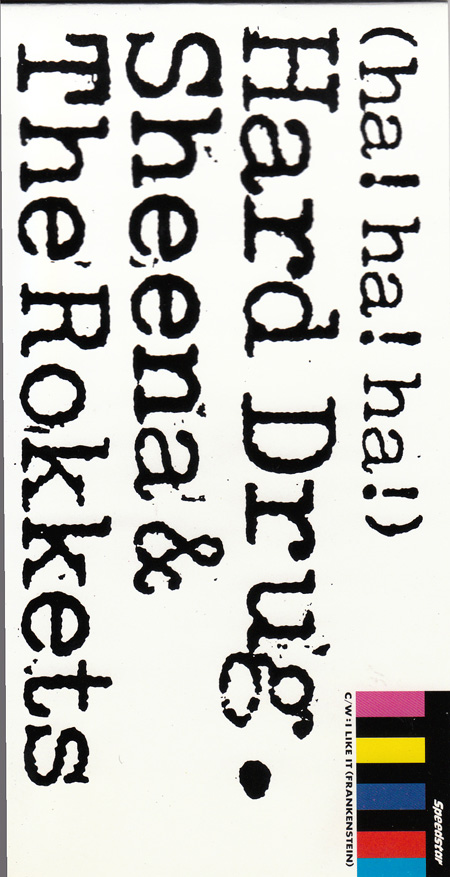 (ha! ha! ha!)
Hard Drug.
Sheena &
The Rokkets
C/W: I LIKE IT (FRANKENSTEIN)
Speedstar